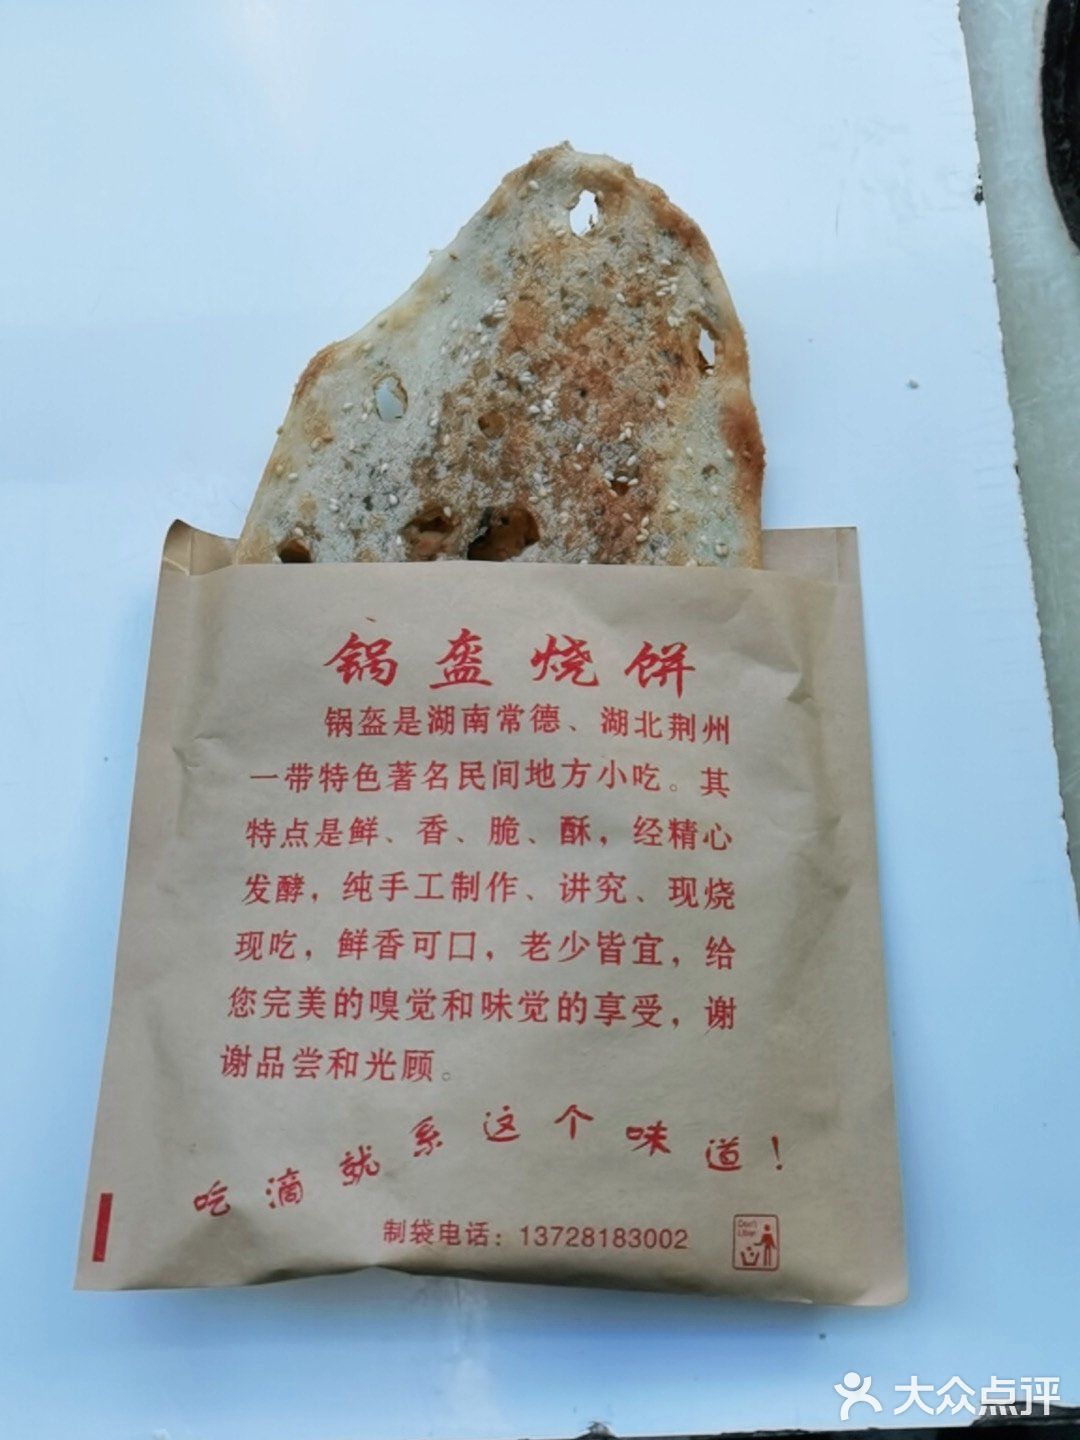 锅盔烧饼
锅盔是湖南常德、湖北荆州
一带特色著名民间地方小吃。其
特点是鲜、香、脆、酥，经精心
发酵，纯手工制作、讲究、现烧
现吃，鲜香可口，老少皆宜，给
您完美的嗅觉和味觉的享受，谢
谢品尝和光顾。
吃滴就系这个味道！
制袋电话：13728183002
Don't
Litter
大众点评